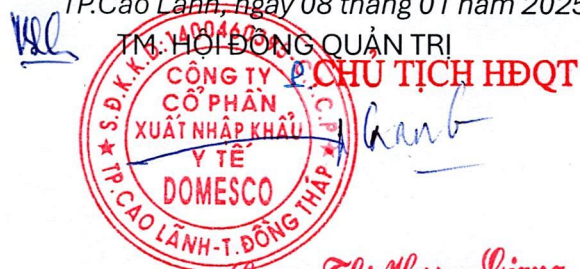 TP.Cao Lãnh, ngày 08 tháng 01 năm 2025
TM. HỘI ĐỒNG QUẢN TRỊ
P.CHỦ TỊCH HĐQT
S.Đ.K.K.D:1400460395-C.T.C.P
CÔNG TY
CỔ PHẦN
XUẤT NHẬP KHẨU
Y TẾ
DOMESCO
TP.CAO LÃNH-T.ĐỒNG THÁP